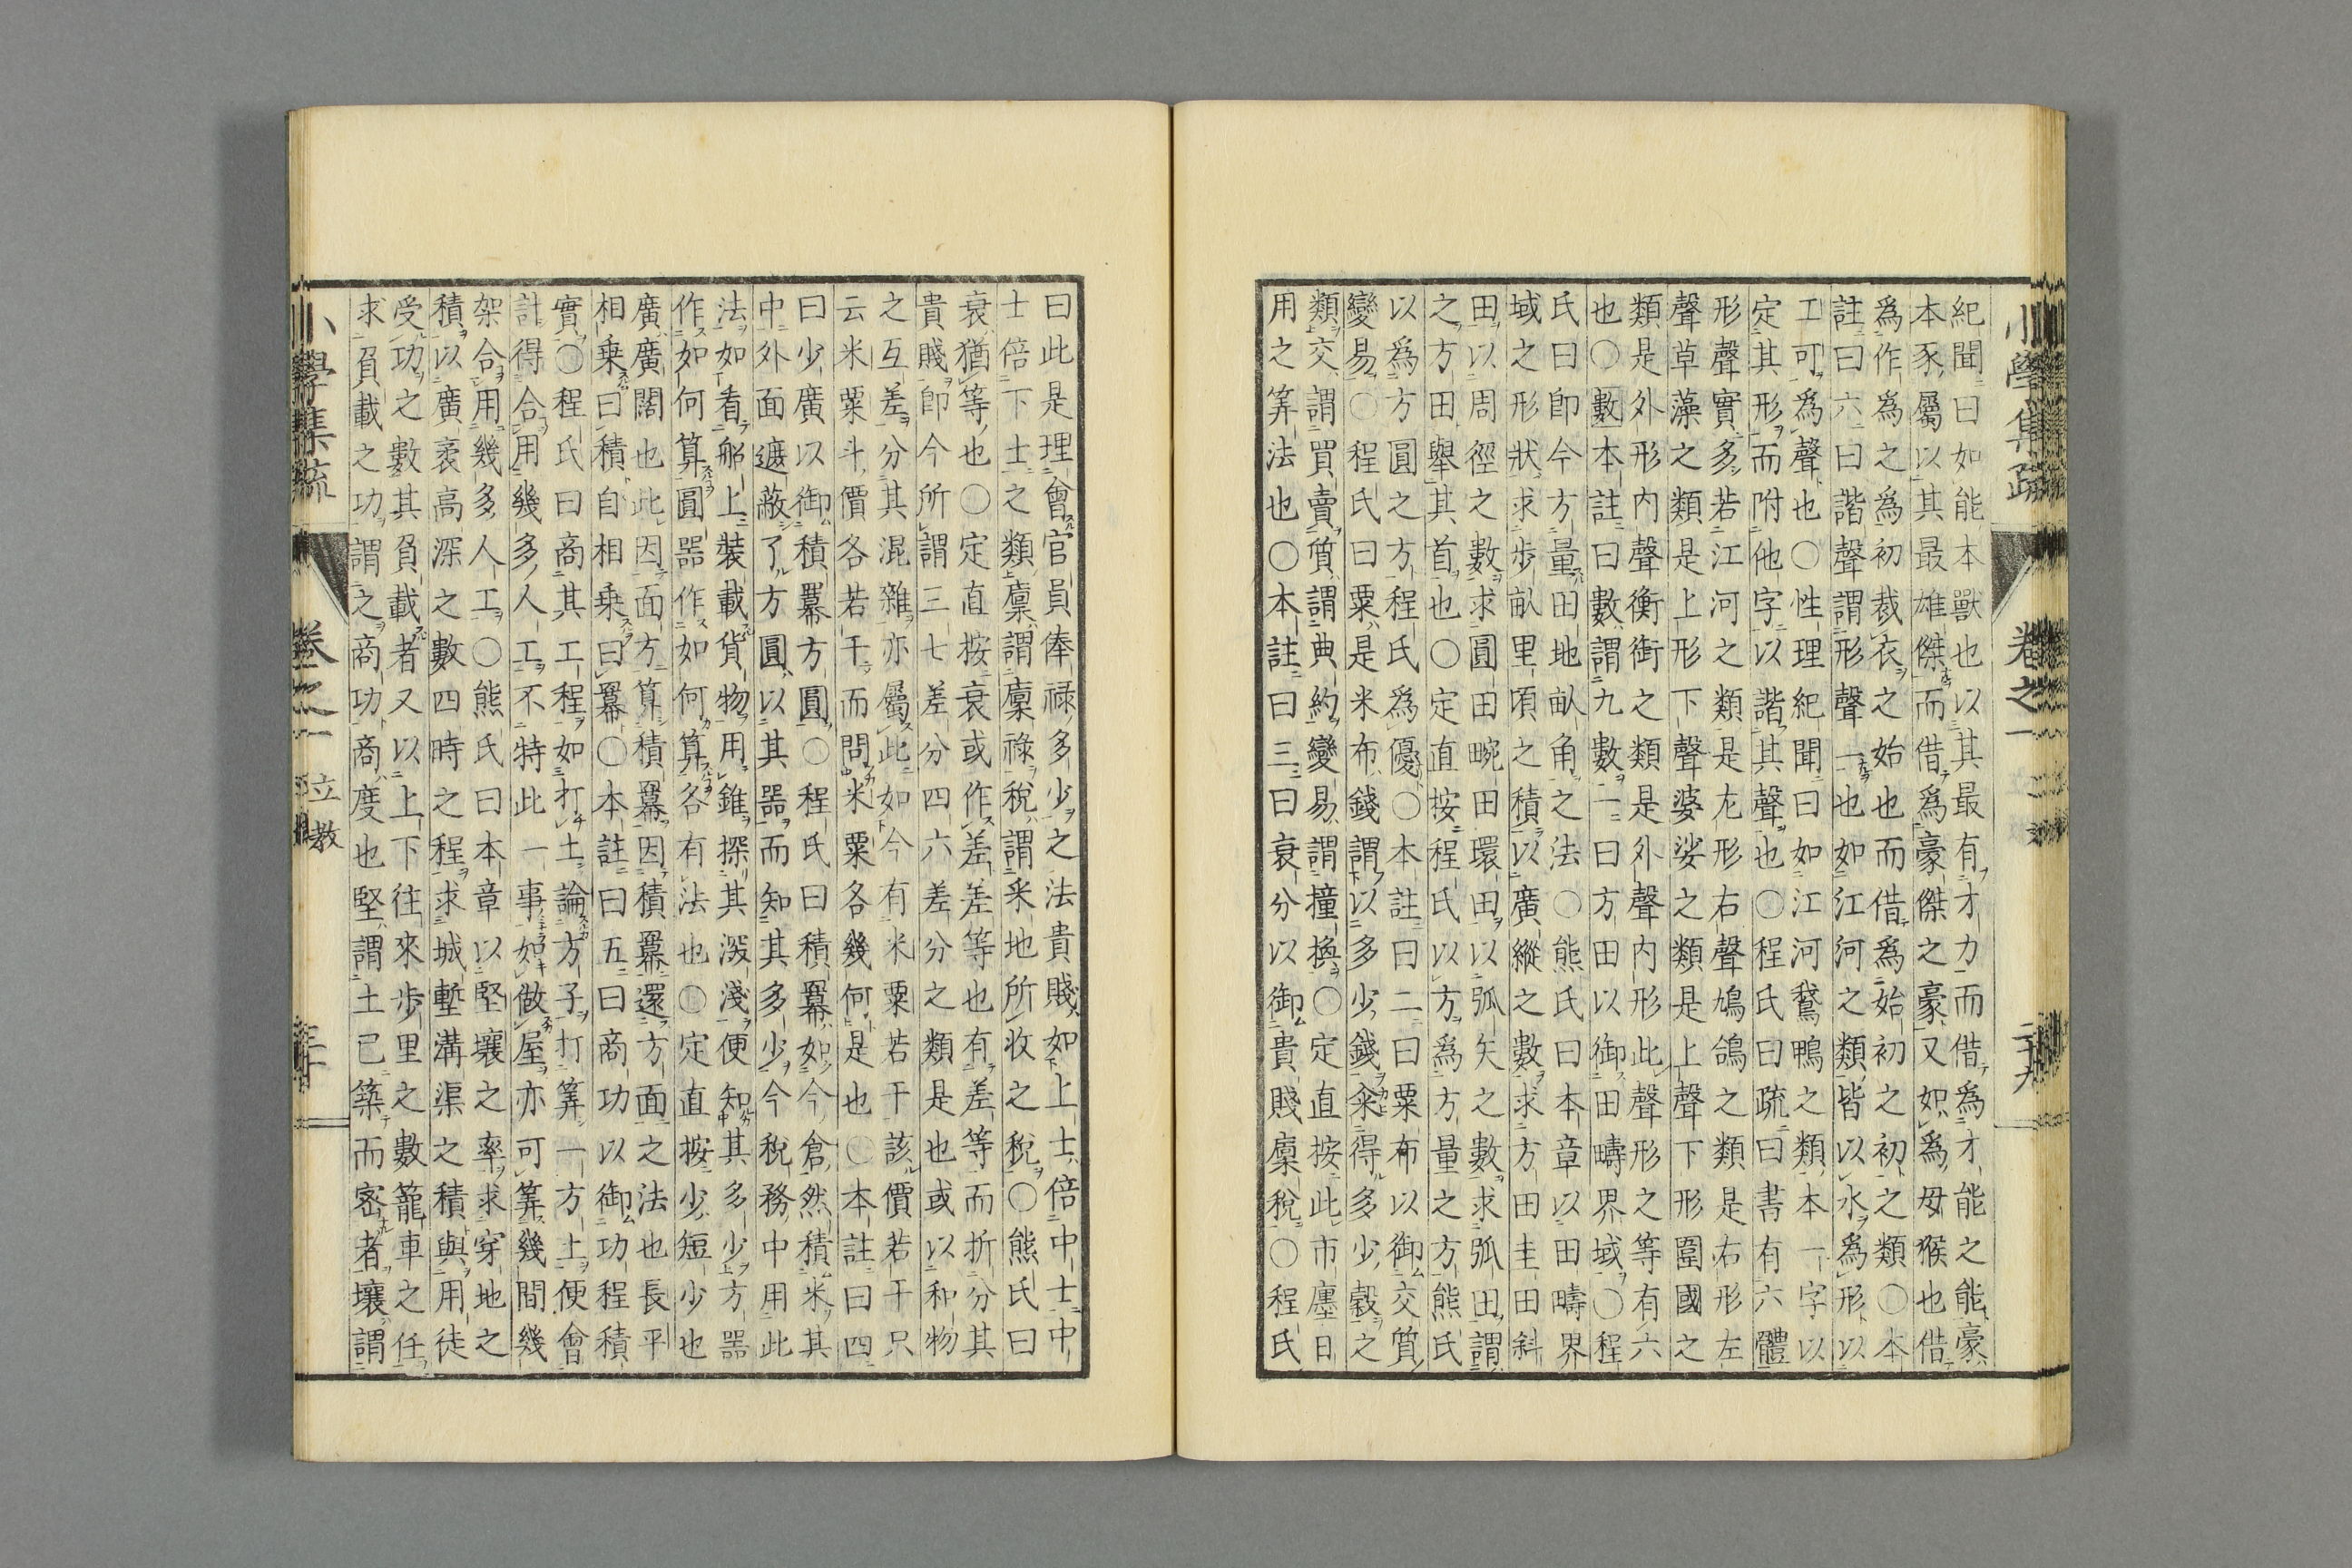 紀聞曰如能本獸也以其最有才力而借爲才能之能豪
本豕屬以其最雄傑而借爲豪傑之豪又如爲母猴也借
爲作爲之爲初裁衣之始也而借爲始初之初之類○本
註曰六曰諧聲謂形聲一也如江河之類皆以水爲形以
工可爲聲也○性理紀聞曰如江河鵞鴨之類本一字以
定其形而附他字以諧其聲也○程氏曰疏曰書有六體
形聲實多若江河之類是左形右聲鳩鴿之類是右形左
聲草藻之類是上形下聲婆娑之類是上聲下形圍國之
類是外形内聲衡銜之類是外聲内形此聲形之等有六
也○數本註曰數謂九數一曰方田以御田疇界域○程
氏曰即今方量田地畝角之法○熊氏曰本章以田疇界
域之形狀求歩畝里頃之積以廣縱之數求方田圭田斜
田以周徑之數求圓田畹田環田以弧矢之數求弧田謂
之方田舉其首也○定直按程氏以方爲方量之方熊氏
以爲方圓之方程氏爲優○本註曰二曰粟布以御交質
變易○程氏曰粟是米布錢謂以多少錢籴得多少穀之
類交謂買賣質謂典約變易謂撞換○定直按此市廛日
用之筭法也○本註曰三曰衰分以御貴賤廩稅○程氏
小學集疏 卷之一 二十九
曰此是理會官員俸祿多少之法貴賤如上士倍中士中
士倍下士之類廩謂廩祿稅謂釆地所收之稅○熊氏曰
衰猶等也○定直按衰或作差差等也有差等而折分其
貴賤即今所謂三七差分四六差分之類是也或以和物
之互差分其混雜亦屬此如今有米粟若干該價若干只
云米粟斗價各若干而問米粟各幾何是也○本註曰四
曰少廣以御積羃方圓○程氏曰積羃如今倉然積米其
中外面遮蔽了方圓以其器而知其多少今稅務中用此
法如看船上裝載貨物用錐探其深淺便知其多少方器
作如何算圓器作如何算各有法也○定直按少短少也
廣廣闊也此因面方算積羃因積羃還方面之法也長平
相乗曰積自相乗曰羃○本註曰五曰商功以御功程積
實○程氏曰商其工程如打土論方子打筭一方土便會
計得合用幾多人工不特此一事如做屋亦可筭幾間幾
架合用幾多人工○熊氏曰本章以堅壤之率求穿地之
積以廣袤高深之數四時之程求城塹溝渠之積與用徒
受功之數其負載者又以上下往來歩里之數籠車之任
求負載之功謂之商功商度也堅謂土已築而密者壤謂
小學集疏 卷之一 立教 三十